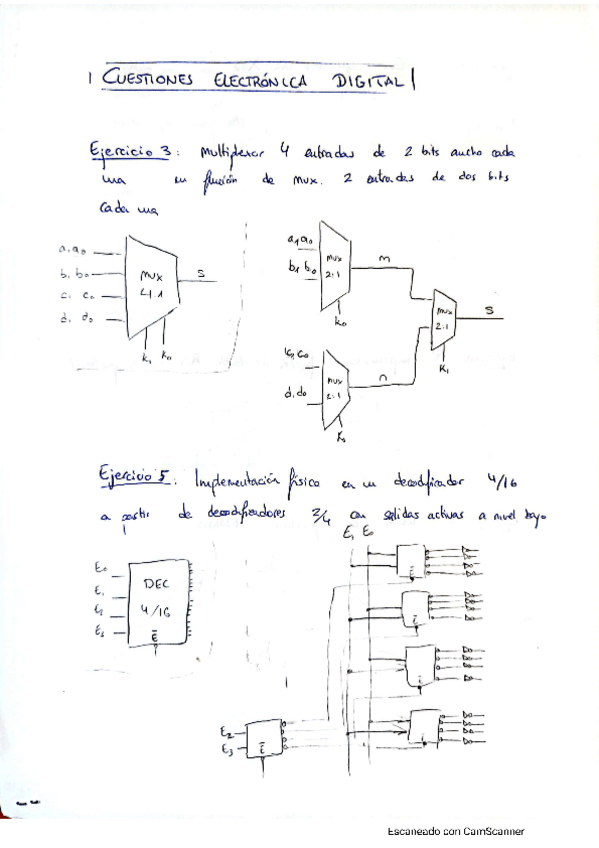 CUESTIONES ELECTRÓNICA DIGITAL
Ejercicio 3: Multiplexor 4 entradas de 2 bits ancho cada
una en función de mux. 2 entradas de dos bits
cada una
a₁a₀
b₁b₀
c₁c₀
d₁d₀
MUX
4:1
S
k₁ k₀
a₁a₀
b₁b₀
MUX
2:1
m
k₀
c₁c₀
d₁d₀
MUX
2:1
n
k₀
MUX
2:1
S
k₁
Ejercicio 5: Implementación físico en un decodificador 4/16
a partir de decodificadores 2/4 con salidas activas a nivel bajo
E₁ E₀
E₀
E₁
E₂
E₃
DEC
4/16
E̅
E₂
E₃
E̅
E̅
E̅
E̅
E̅
Escaneado con CamScanner